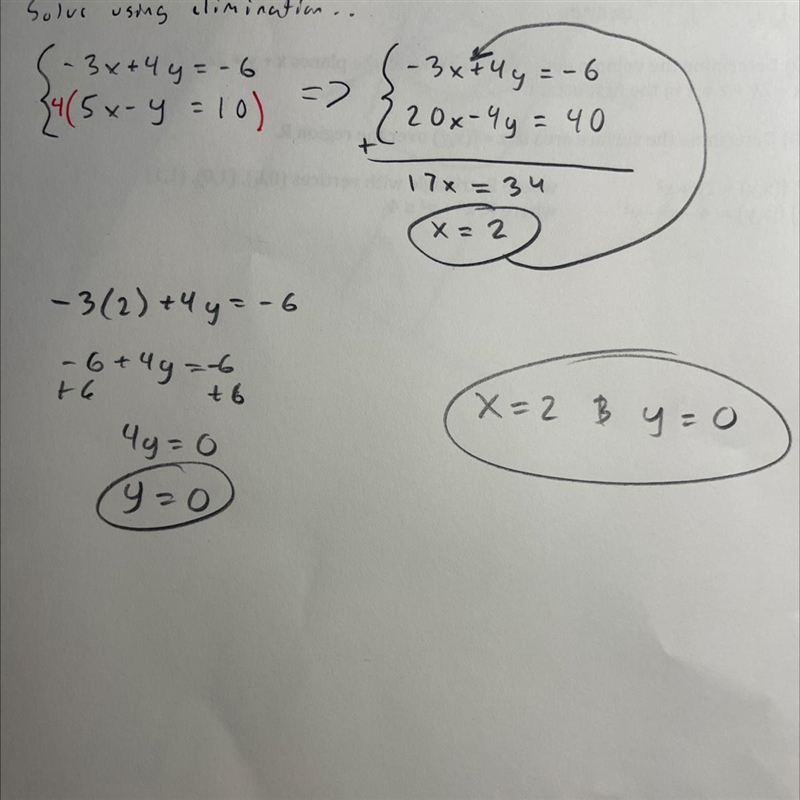 Solve using elimination...
-3x+4y=-6
4(5x-y=10)
=>
-3x+4y=-6
20x-4y=40
+
17x=34
x=2
-3(2)+4y=-6
-6+4y=-6
+6 +6
4y=0
y=0
x=2 & y=0